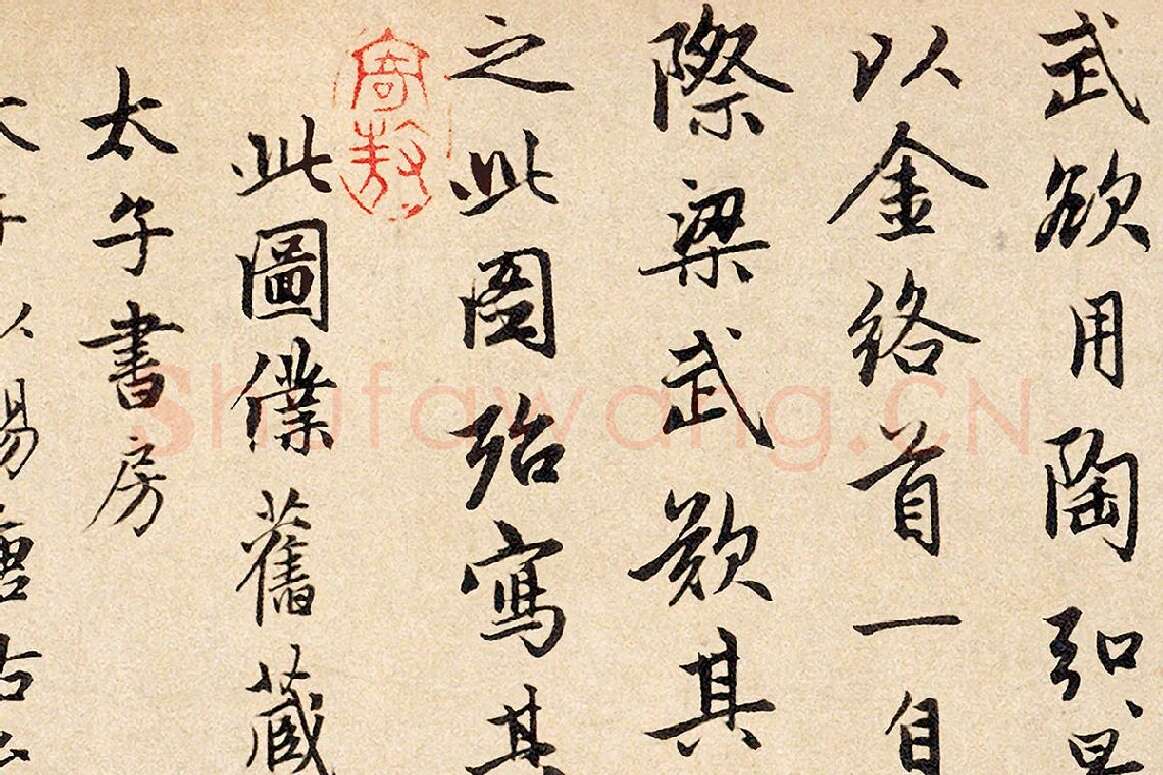 武欲用陶弘
以金絡首一自
際梁武歎其
之此圖殆寫其
此圖僕舊藏
太子書房
太子以賜唐古
Shufawang.CN